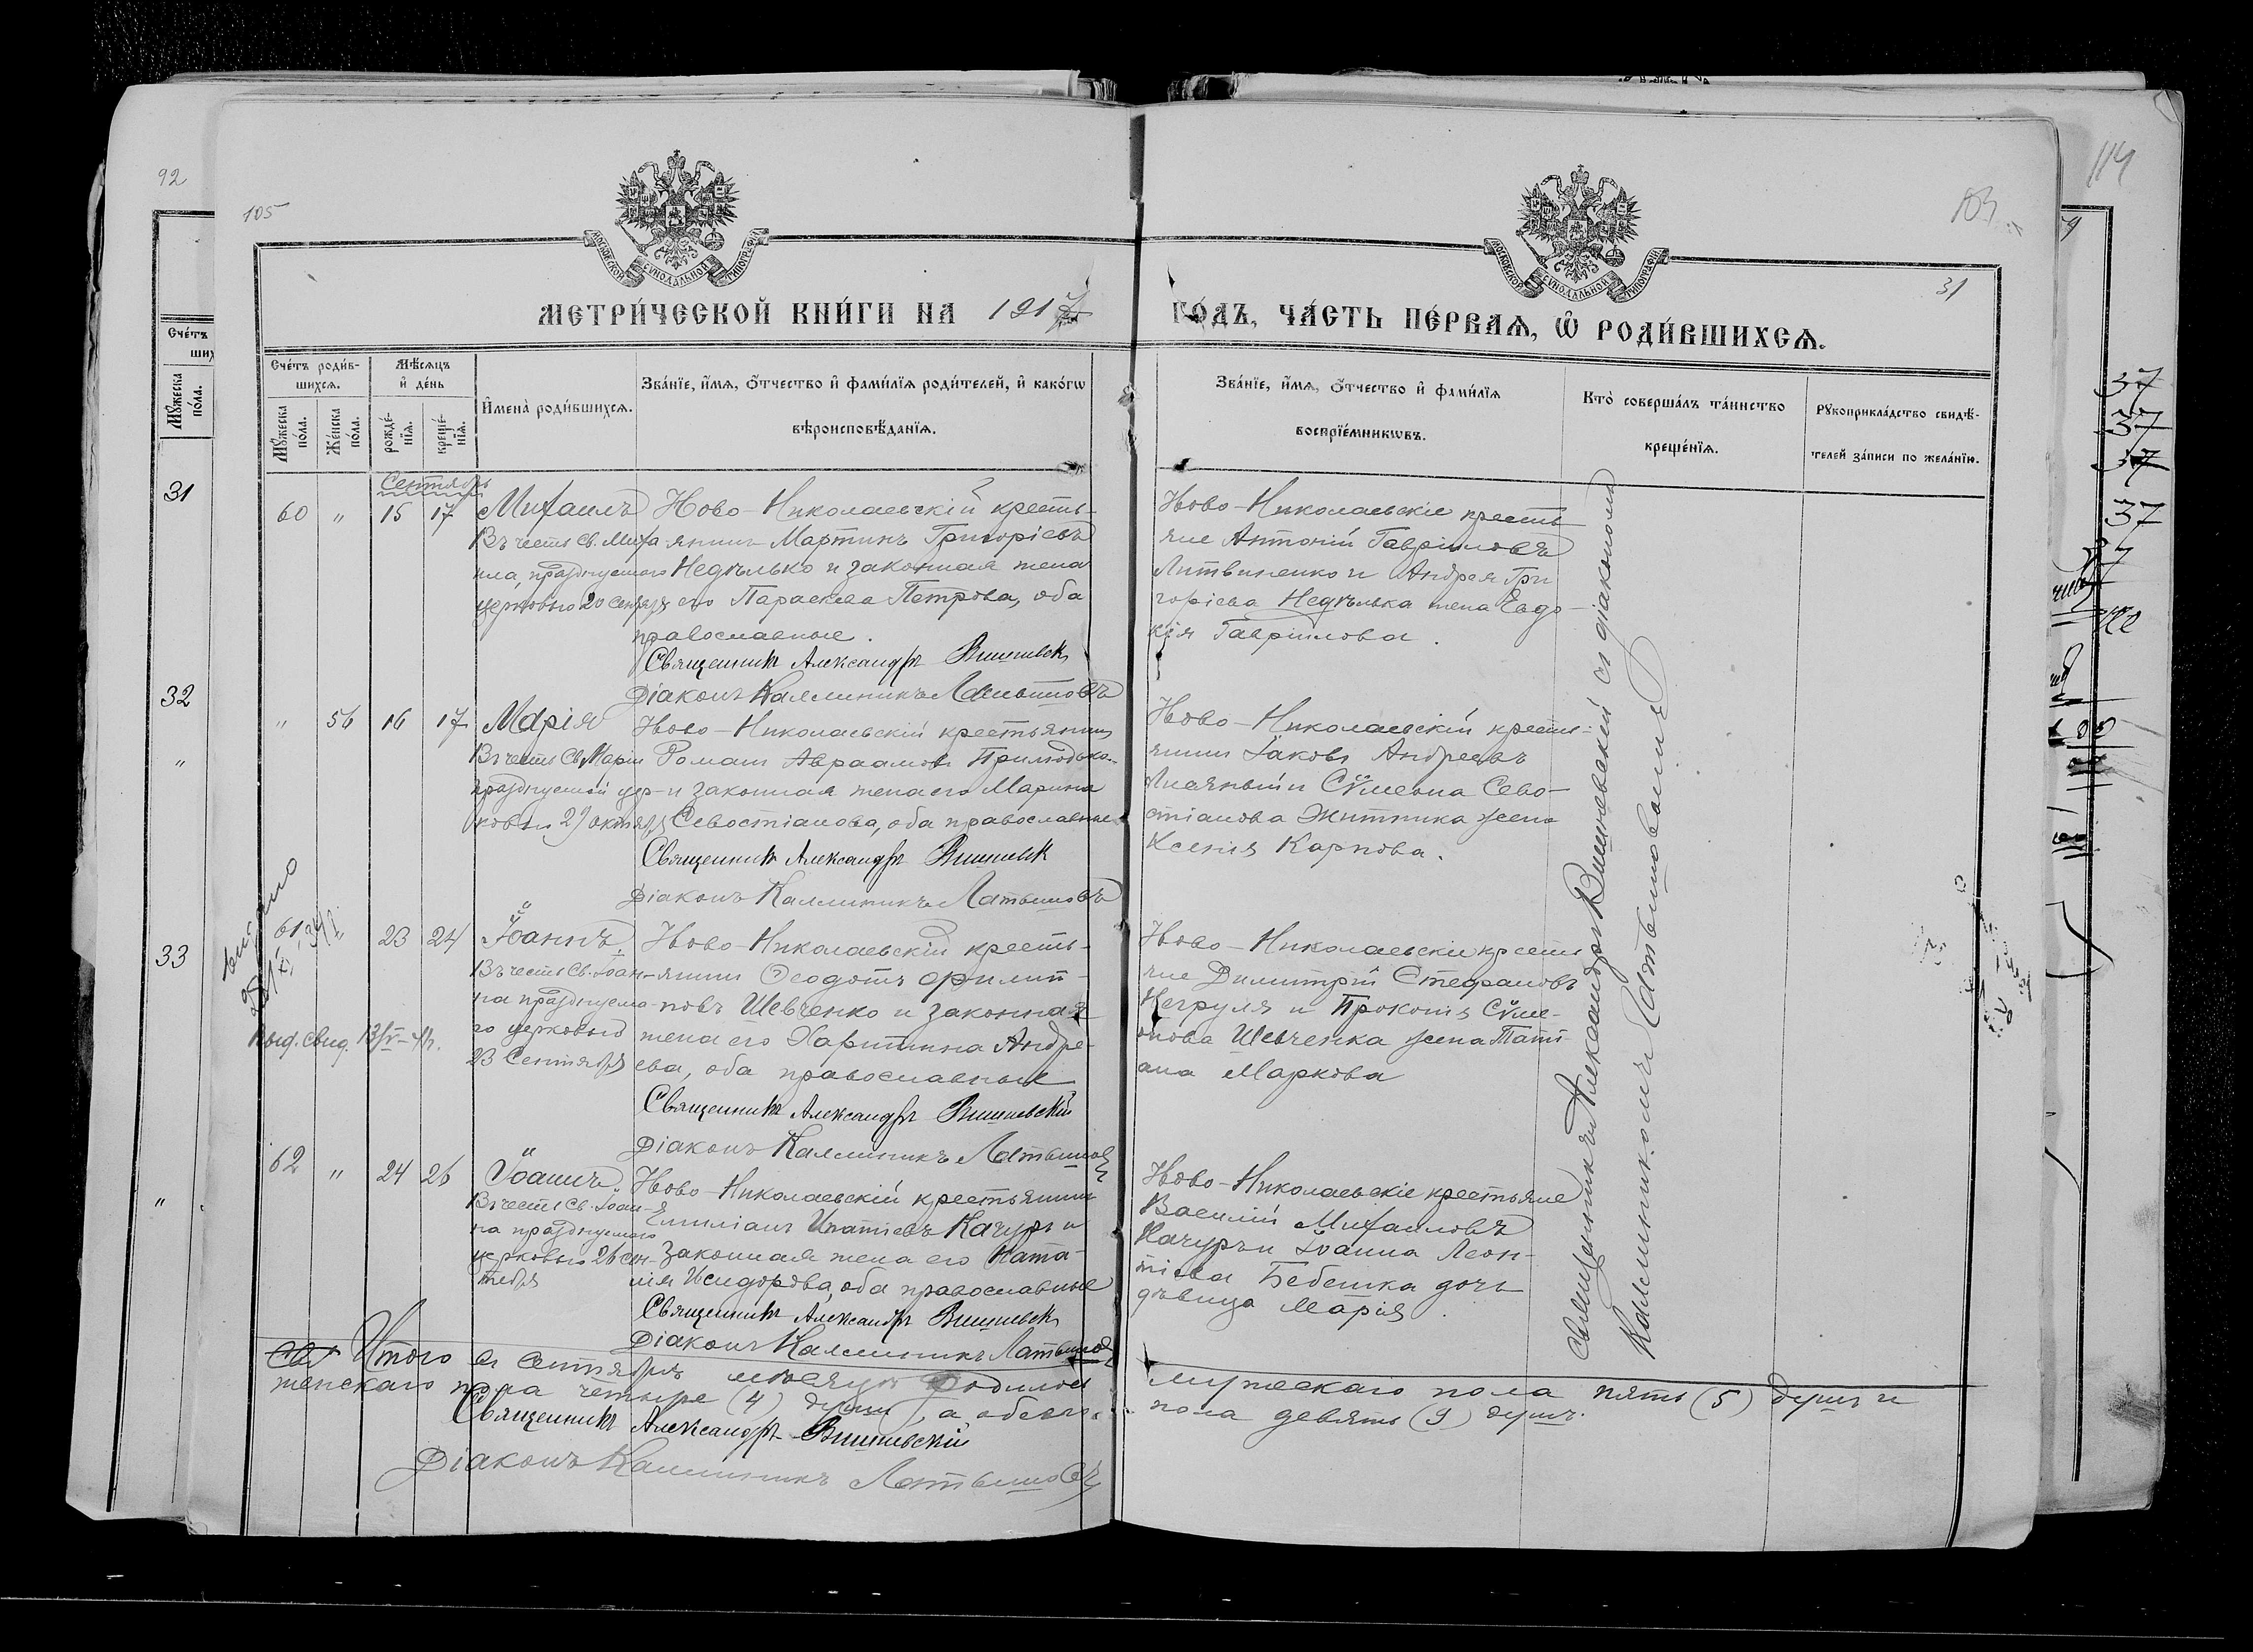 92
105
114
103
31
МОСКОВСКОЙ СУНОДАЛЬНОЙ ТИПОГРАФІИ
МОСКОВСКОЙ СУНОДАЛЬНОЙ ТИПОГРАФІИ
МЕТРИ́ЧЕСКОЙ КНИ́ГИ НА 1917 ГО́ДЪ, ЧА́СТЬ ПЕ́РВАЯ, Ѡ РОДИ́ВШИХСЯ.
Сче́тъ роди́в-
шихся.
Мꙋжеска по́ла.
Же́нска по́ла.
Мѣ́сяцъ
и҆ де́нь
рожде́-
нїя.
креще́-
нїя.
И҆мена̀ роди́вшихся.
Зва́нїе, и҆́мя, ѻ҆́тчество и҆ фами́лїя роди́телей, и҆ како́гѡ
вѣроисповѣ́данїя.
Зва́нїе, и҆́мя, ѻ҆́тчество и҆ фами́лїя
воспрїе́мникѡвъ.
Кто̀ соверша́лъ та́инство
креще́нїя.
Рꙋкоприкла́дство свидѣ́-
телей за́писи по жела́нїю.
Сентябрь
60 " 15 17
Михаилъ
Въ честь Св. Миха-
ила, празднуемаго
церковью 20 сентября
Ново-Николаевскій кресть-
янинъ Мартинъ Григорієвъ
Недѣлько и законная жена
его Параскева Петрова, оба
православные.
Священникъ Александръ Вишневск
Діаконъ Каллиникъ Латышовъ
Ново-Николаевскіе кресть-
яне Антоній Гавріиловъ
Литвиненко и Андрея Гри
горіева Недѣлька жена Евдо-
кія Гавріилова.
" 56 16 17
Марія
Въ честь Св. Маріи
празднуемой цер-
ковью 29 октября
Ново-Николаевскій крестьянинъ
Романъ Авраамовъ Примодько
и законная жена его Марина
Севостіанова, оба православные
Священникъ Александръ Вишневск
Діаконъ Каллиникъ Латышовъ
Ново-Николаевскій кресть-
янинъ Іаковъ Андреевъ
и Сѵмеона Сево-
стіанова Житника жена
Ксенія Карпова.
выдано
61 " 23 24
выд. свид.
Іоаннъ
Въ честь Св. Іоан-
на празднуема-
го церковью
23 Сентября
Ново-Николаевскій кресть-
янинъ Ѳеодотъ Филип-
повъ Шевченко и законная
жена его Харитина Андре-
ева, оба православные
Священникъ Александръ Вишневскій
Діаконъ Каллиникъ Латышовъ
Ново-Николаевскіе кресть
яне Димитрій Стефановъ
Негруля и Прокопія Сѵме-
онова Шевченка жена Таті-
ана Маркова
62 " 24 26
Іоаннъ
Въ честь Св. Іоан-
на празднуемаго
церковью 26 сен-
тября
Ново-Николаевскій крестьянинъ
Емиліанъ Ипатіевъ Качуръ и
законная жена его Ната-
лія Исидорова, оба православные
Священникъ Александръ Вишневск
Діаконъ Каллиникъ Латышовъ
Ново-Николаевскіе крестьяне
Василій Михаиловъ
Качуръ и Іоанна Леон-
тіева Бебешка дочь
дѣвица Марія.
Священникъ Александръ Вишневскій съ діакономъ
Каллиникомъ Латышовымъ
Итого въ Сентябрѣ мѣсяцѣ родилось мужескаго пола пять (5) душъ и
женскаго пола четыре (4) души, а обоего пола девять (9) душъ.
Священникъ Александръ Вишневскій
Діаконъ Каллиникъ Латышовъ
Сче́тъ
Мꙋжеска
по́ла.
31
32
"
33
"
37
37
37
37